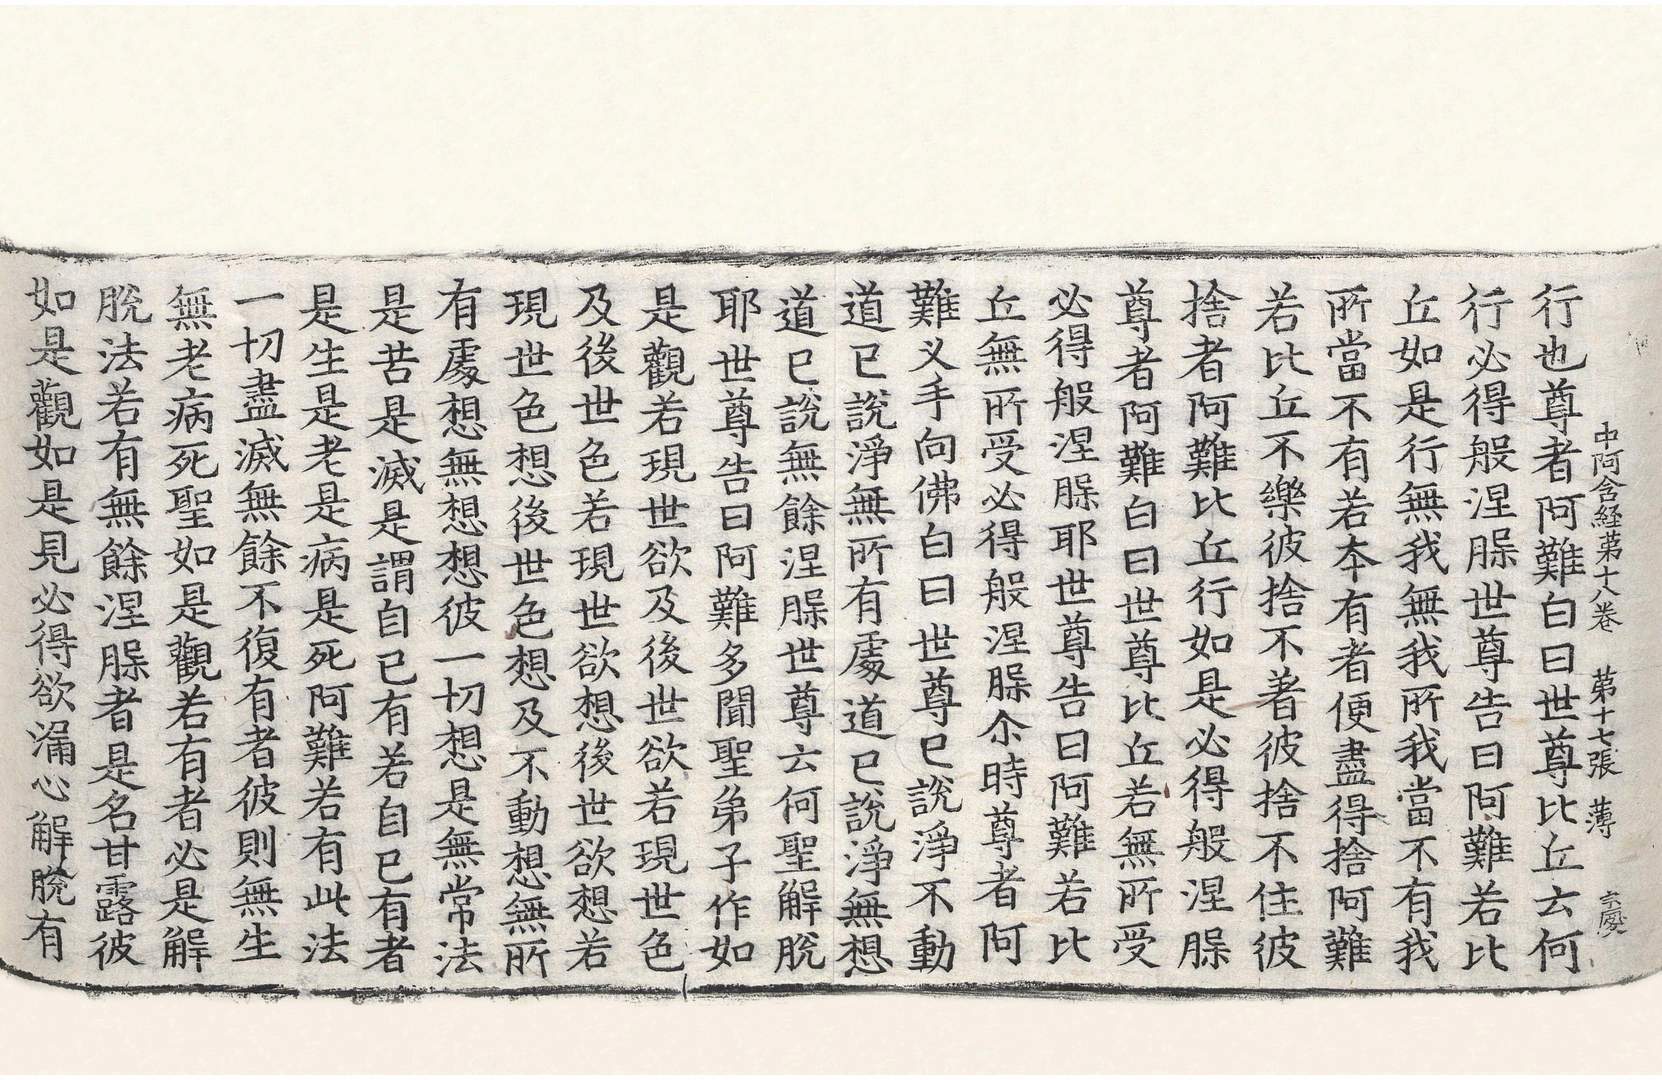 中阿含経苐十八卷　苐十七張　薄
行也尊者阿難白曰世尊比丘云何
行必得般涅槃世尊告曰阿難若比
丘如是行無我無我所我當不有我
所當不有若本有者便盡得捨阿難
若比丘不樂彼捨不著彼捨不住彼
捨者阿難比丘行如是必得般涅槃
尊者阿難白曰世尊比丘若無所受
必得般涅槃耶世尊告曰阿難若比
丘無所受必得般涅槃尒時尊者阿
難叉手向佛白曰世尊已說淨不動
道已說淨無所有處道已說淨無想
道已說無餘涅槃世尊云何聖解脫
耶世尊告曰阿難多聞聖弟子作如
是觀若現世欲及後世欲若現世色
及後世色若現世欲想後世欲想若
現世色想後世色想及不動想無所
有處想無想想彼一切想是無常法
是苦是滅是謂自已有若自已有者
是生是老是病是死阿難若有此法
一切盡滅無餘不復有者彼則無生
無老病死聖如是觀若有者必是解
脫法若有無餘涅槃者是名甘露彼
如是觀如是見必得欲漏心解脫有